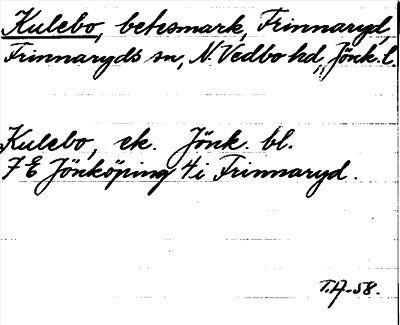 Kulebo, betesmark, Frinnaryd,
Frinnaryds sn, N. Vedbo hd, Jönk. l.
Kulebo, ek. Jönk. bl.
7 E Jönköping 4 i Frinnaryd.
T.A-58.